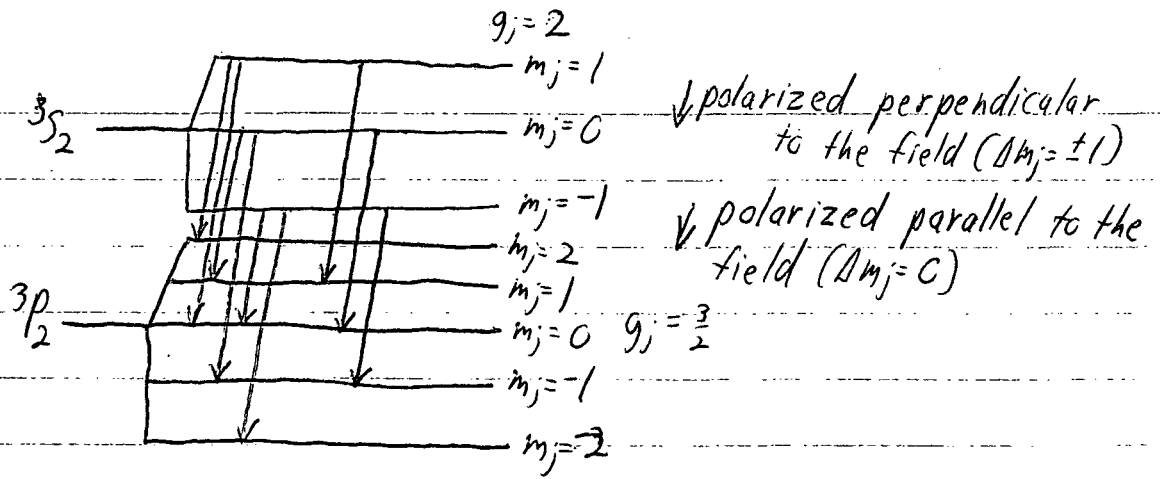 g_j = 2
m_j = 1
³S₂
m_j = 0
m_j = -1
m_j = 2
m_j = 1
³P₂
m_j = 0 g_j = 3/2
m_j = -1
m_j = -2
↓ polarized perpendicular
to the field (Δm_j = ±1)
↓ polarized parallel to the
field (Δm_j = 0)